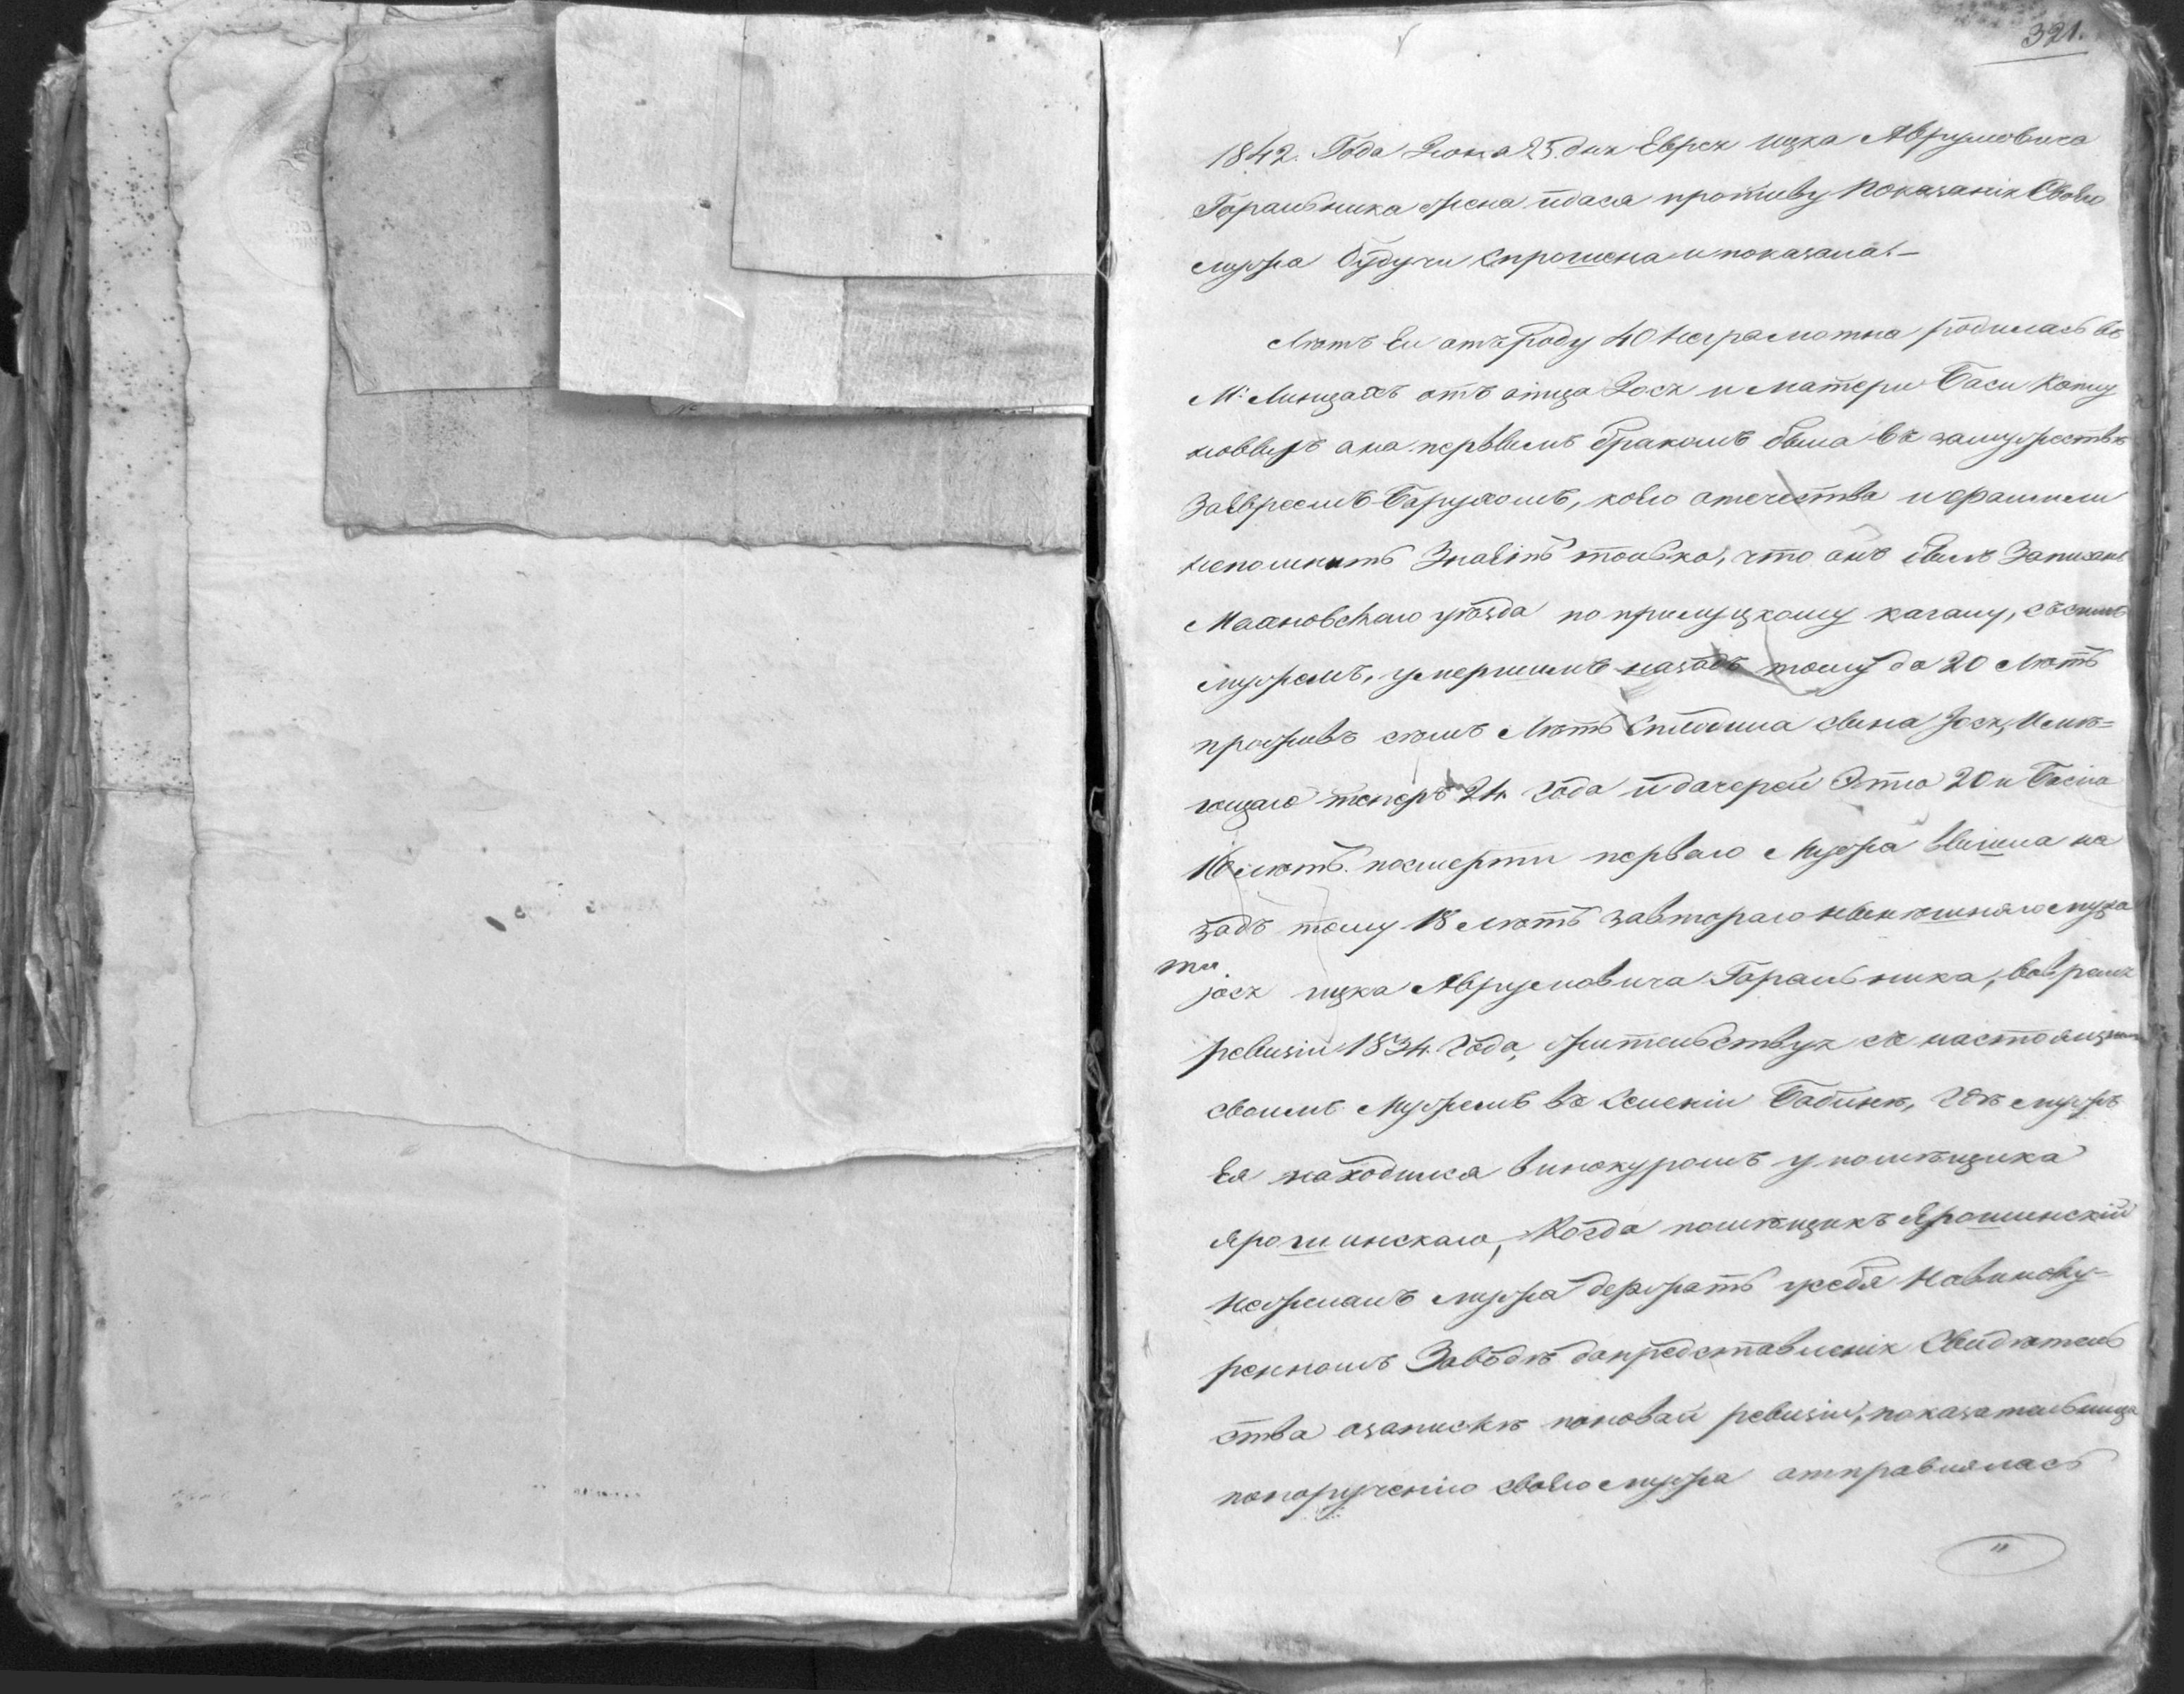 321.
1842. Года Іюня 25. дня Еврея ицка Абрумовича
Горальника жена идася противу Показанія Своего
мужа будучи Спрошена и показала:—
Лѣтъ Ей отъ роду 40 Неграмотна родилась въ
М: Линцахъ отъ отца Іося и матери Баси
она первымъ бракомъ была въ замужествѣ
За Евреемъ Барухомъ, коего отечества и фамиліи
непомнитъ Знаетъ только, что онъ былъ Записанъ
уѣзда по прилуцкому кагалу, съ симъ
мужемъ, умершимъ назадъ тому до 20 лѣтъ
проживъ семь Лѣтъ Сплодила сына Іося, Имѣ=
ющаго теперъ 24. Года и дочерей Этлю 20 и Басю
16 лѣтъ. посмерти перваго Мужа вышла на
задъ тому 18 Лѣтъ завтораго нынѣшняго мужа
ицка Абрумовича Горальника, вовремя
ревизіи 1834. Года, жительствуя съ настоящимъ
своимъ Мужемъ въ Селеніи Бабинѣ, Гдѣ мужъ
Ея находился винокуромъ у помѣщика
Ярошинскаго, Когда помѣщикъ Ярошинскій
Нежелалъ мужа держать усебя Навиноку=
ренномъ Заводѣ допредставленія Свидѣтель
ства озапискѣ поновой ревизіи, показательница
попорученію своего мужа отправлялась
"